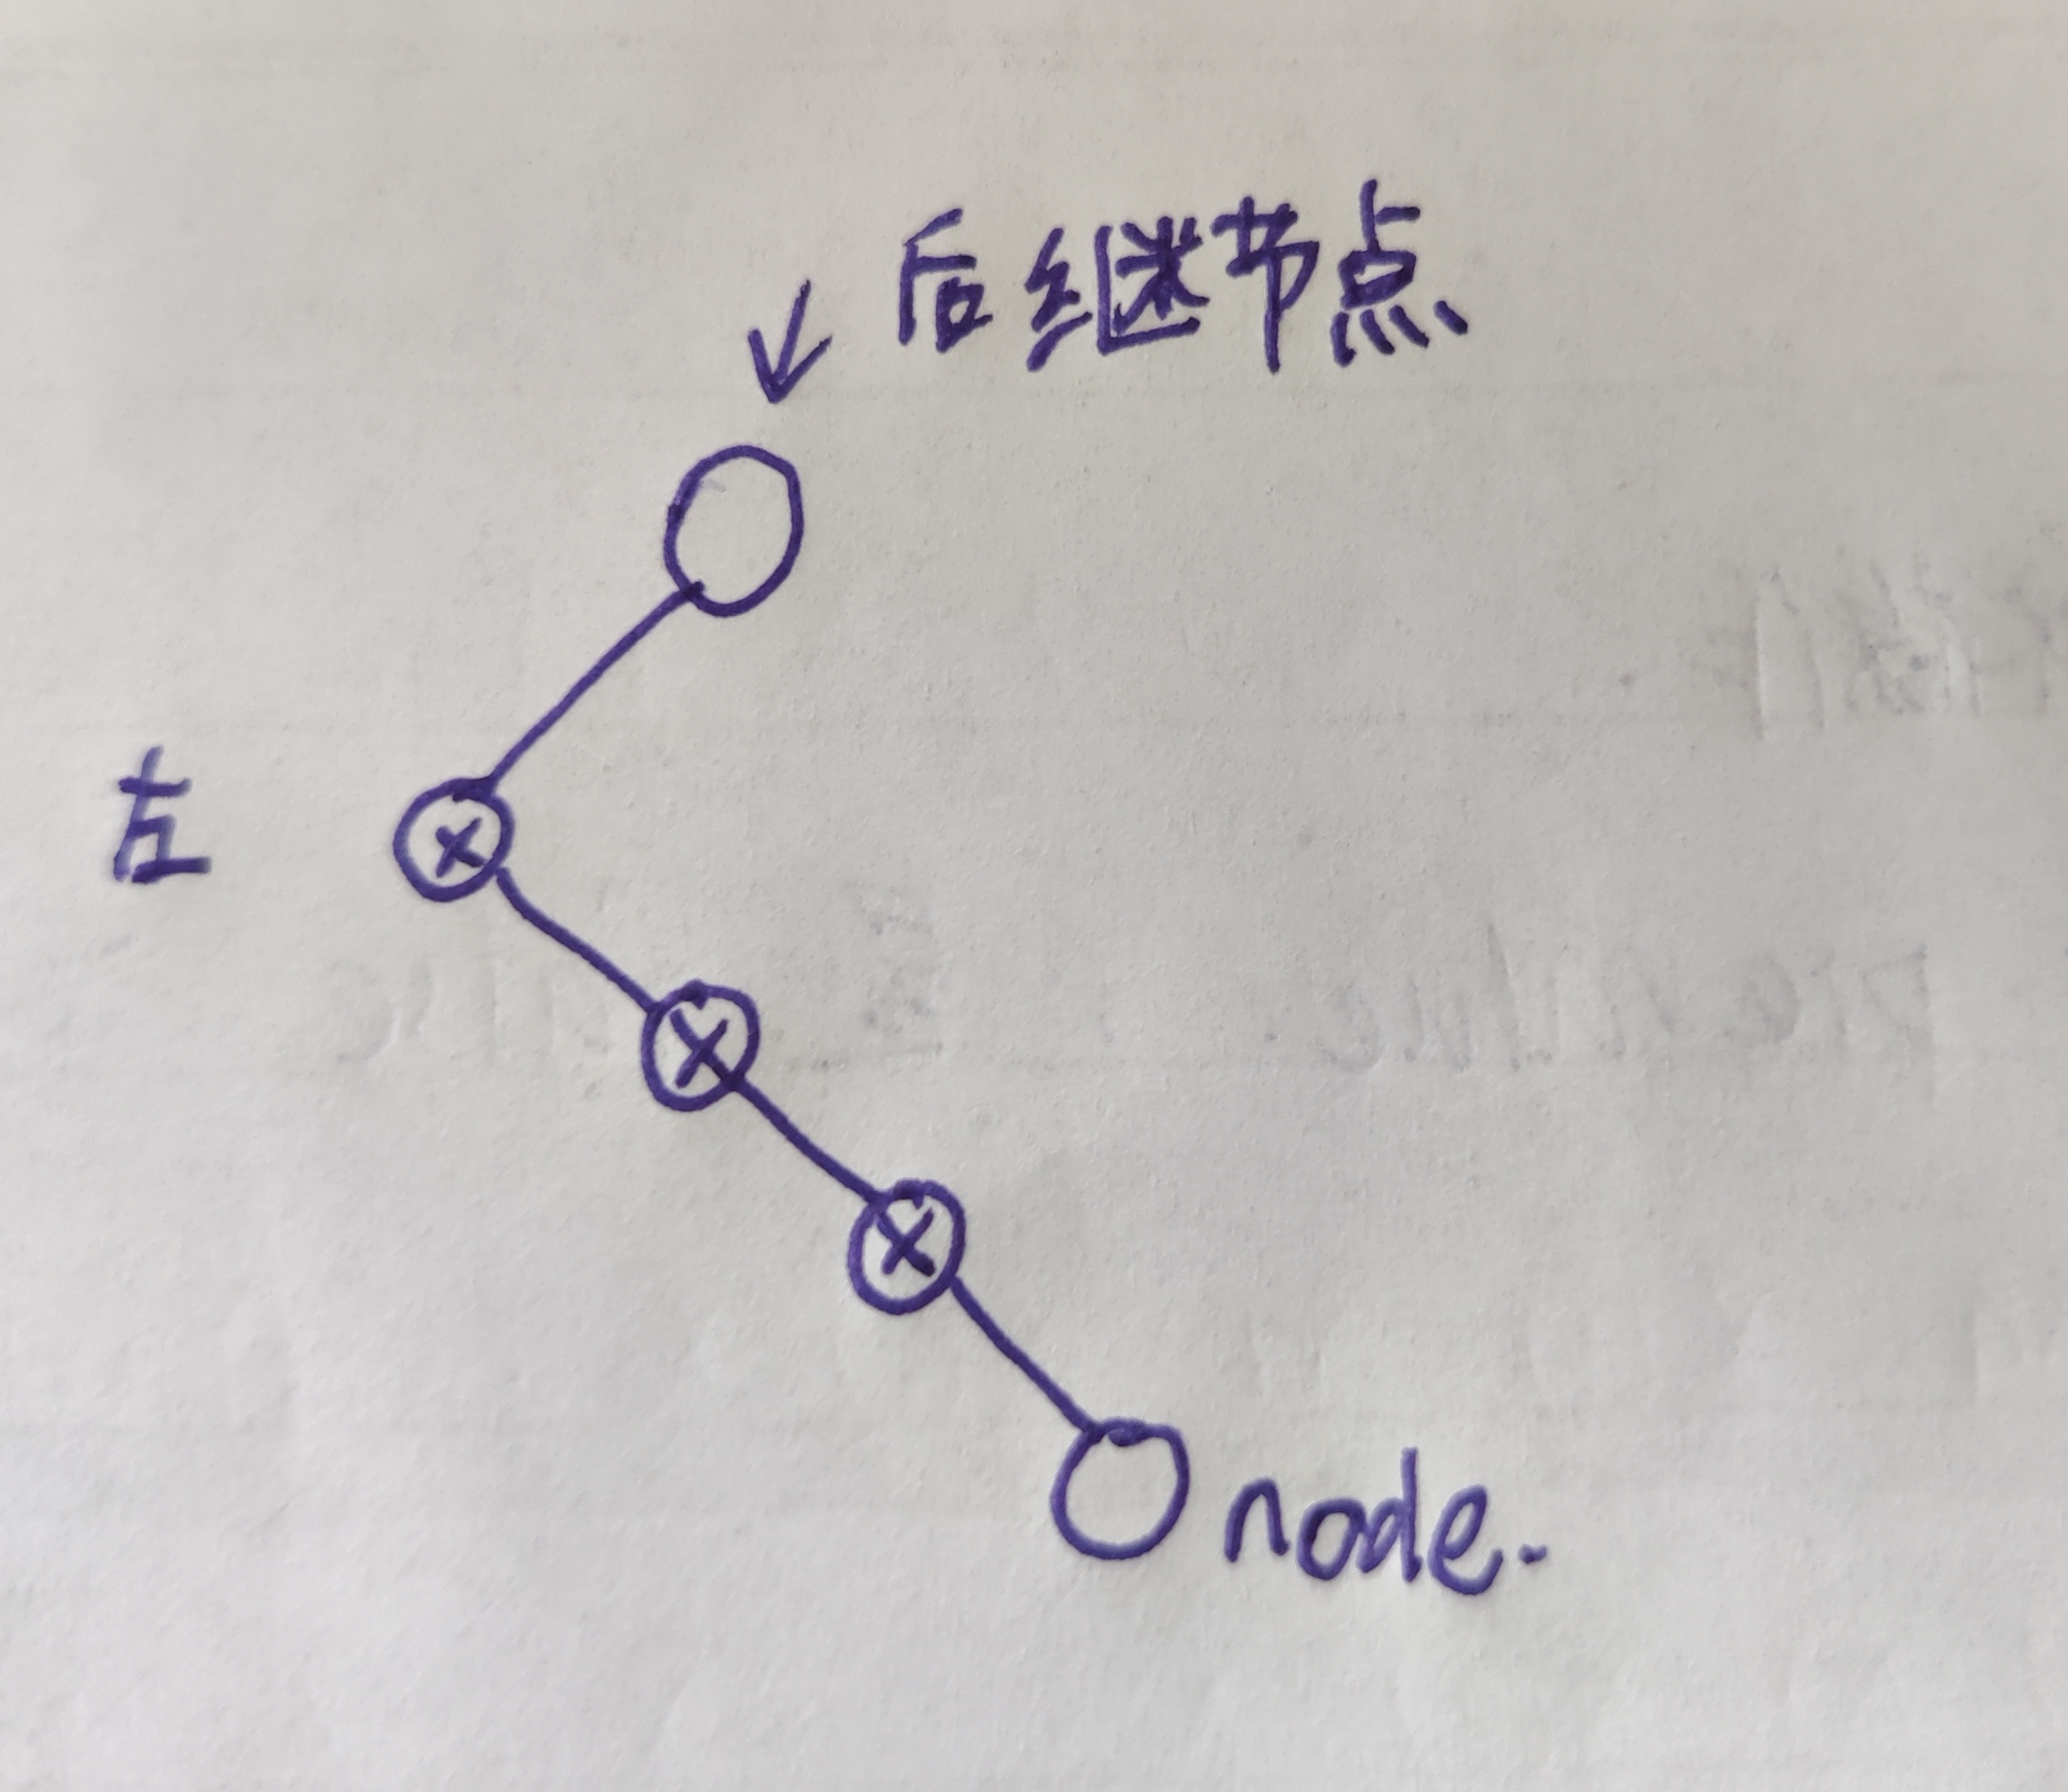 后继节点
左
node.